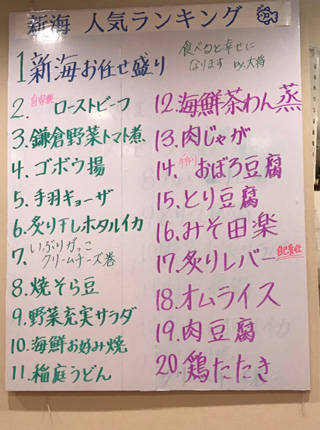 新海 人気ランキング
食べると幸せに
なります by.大将
1 新海お任せ盛り
2. 自家製 ローストビーフ
3. 鎌倉野菜トマト煮
4. ゴボウ揚
5. 手羽ギョーザ
6. 炙り干しホタルイカ
7. いぶりがっこ
クリームチーズ巻
8. 焼そら豆
9. 野菜充実サラダ
10. 海鮮お好み焼
11. 稲庭うどん
12. 海鮮茶わん蒸
13. 肉じゃが
14. おぼろ豆腐
15. とり豆腐
16. みそ田楽
17. 炙りレバー
18. オムライス
19. 肉豆腐
20. 鶏たたき